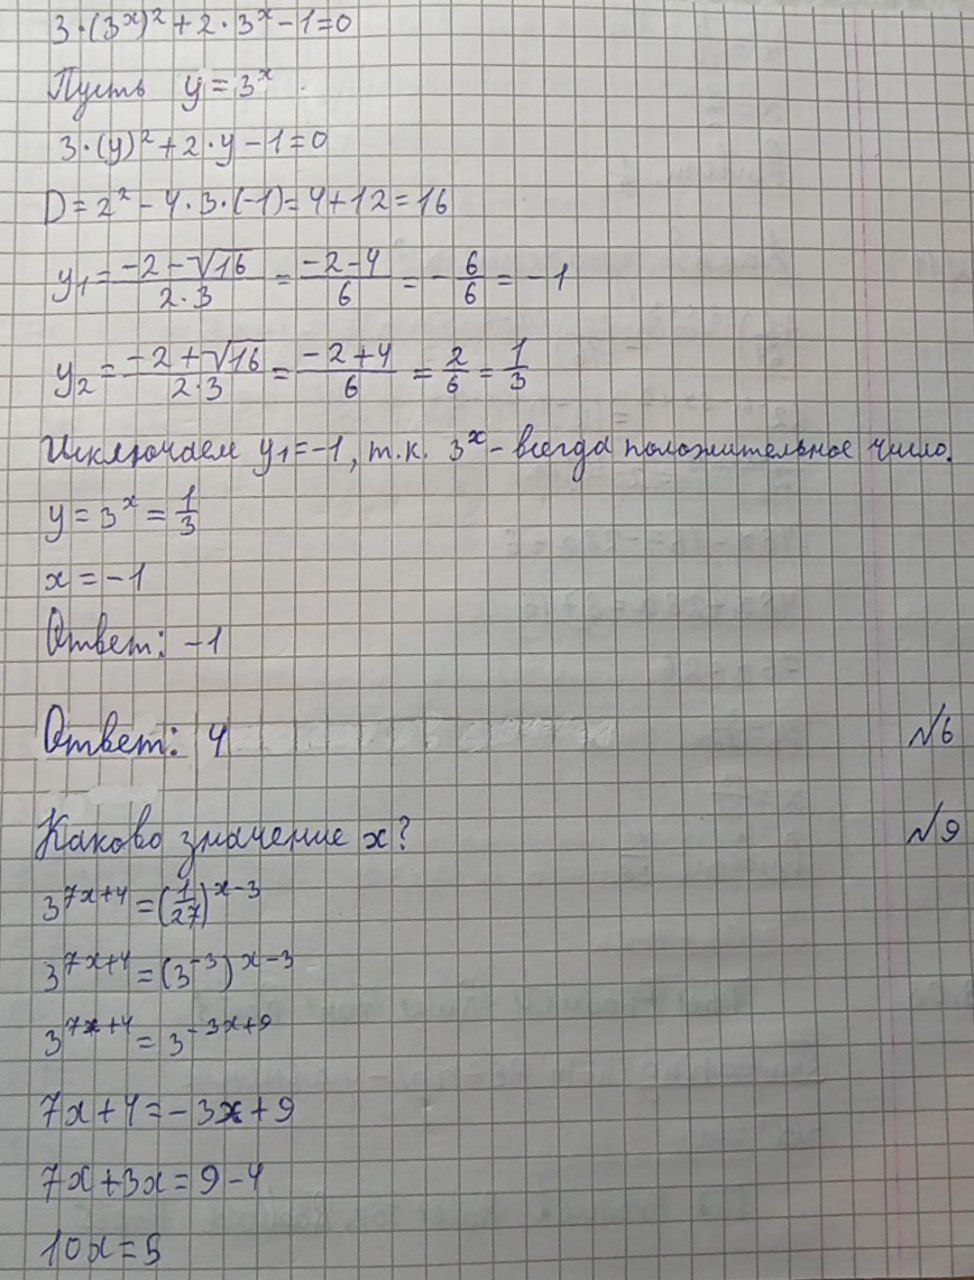 3·(3^x)^2+2·3^x-1=0
Пусть y=3^x.
3·(y)^2+2·y-1=0
D=2^2-4·3·(-1)=4+12=16
y1=(-2-√16)/(2·3)=(-2-4)/6=-6/6=-1
y2=(-2+√16)/(2·3)=(-2+4)/6=2/6=1/3
Исключаем y1=-1, т.к. 3^x - всегда положительное число.
y=3^x=1/3
x=-1
Ответ: -1
Ответ: 4 №6
Каково значение x? №9
3^(7x+4)=(1/27)^(x-3)
3^(7x+4)=(3^(-3))^(x-3)
3^(7x+4)=3^(-3x+9)
7x+4=-3x+9
7x+3x=9-4
10x=5